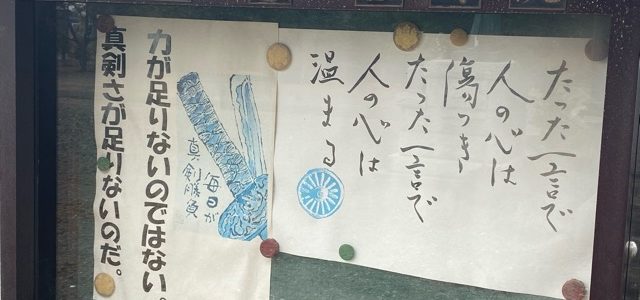 たった一言で
人の心は
傷つき
たった一言で
人の心は
温まる
毎日が
真剣勝負
力が足りないのではない。
真剣さが足りないのだ。